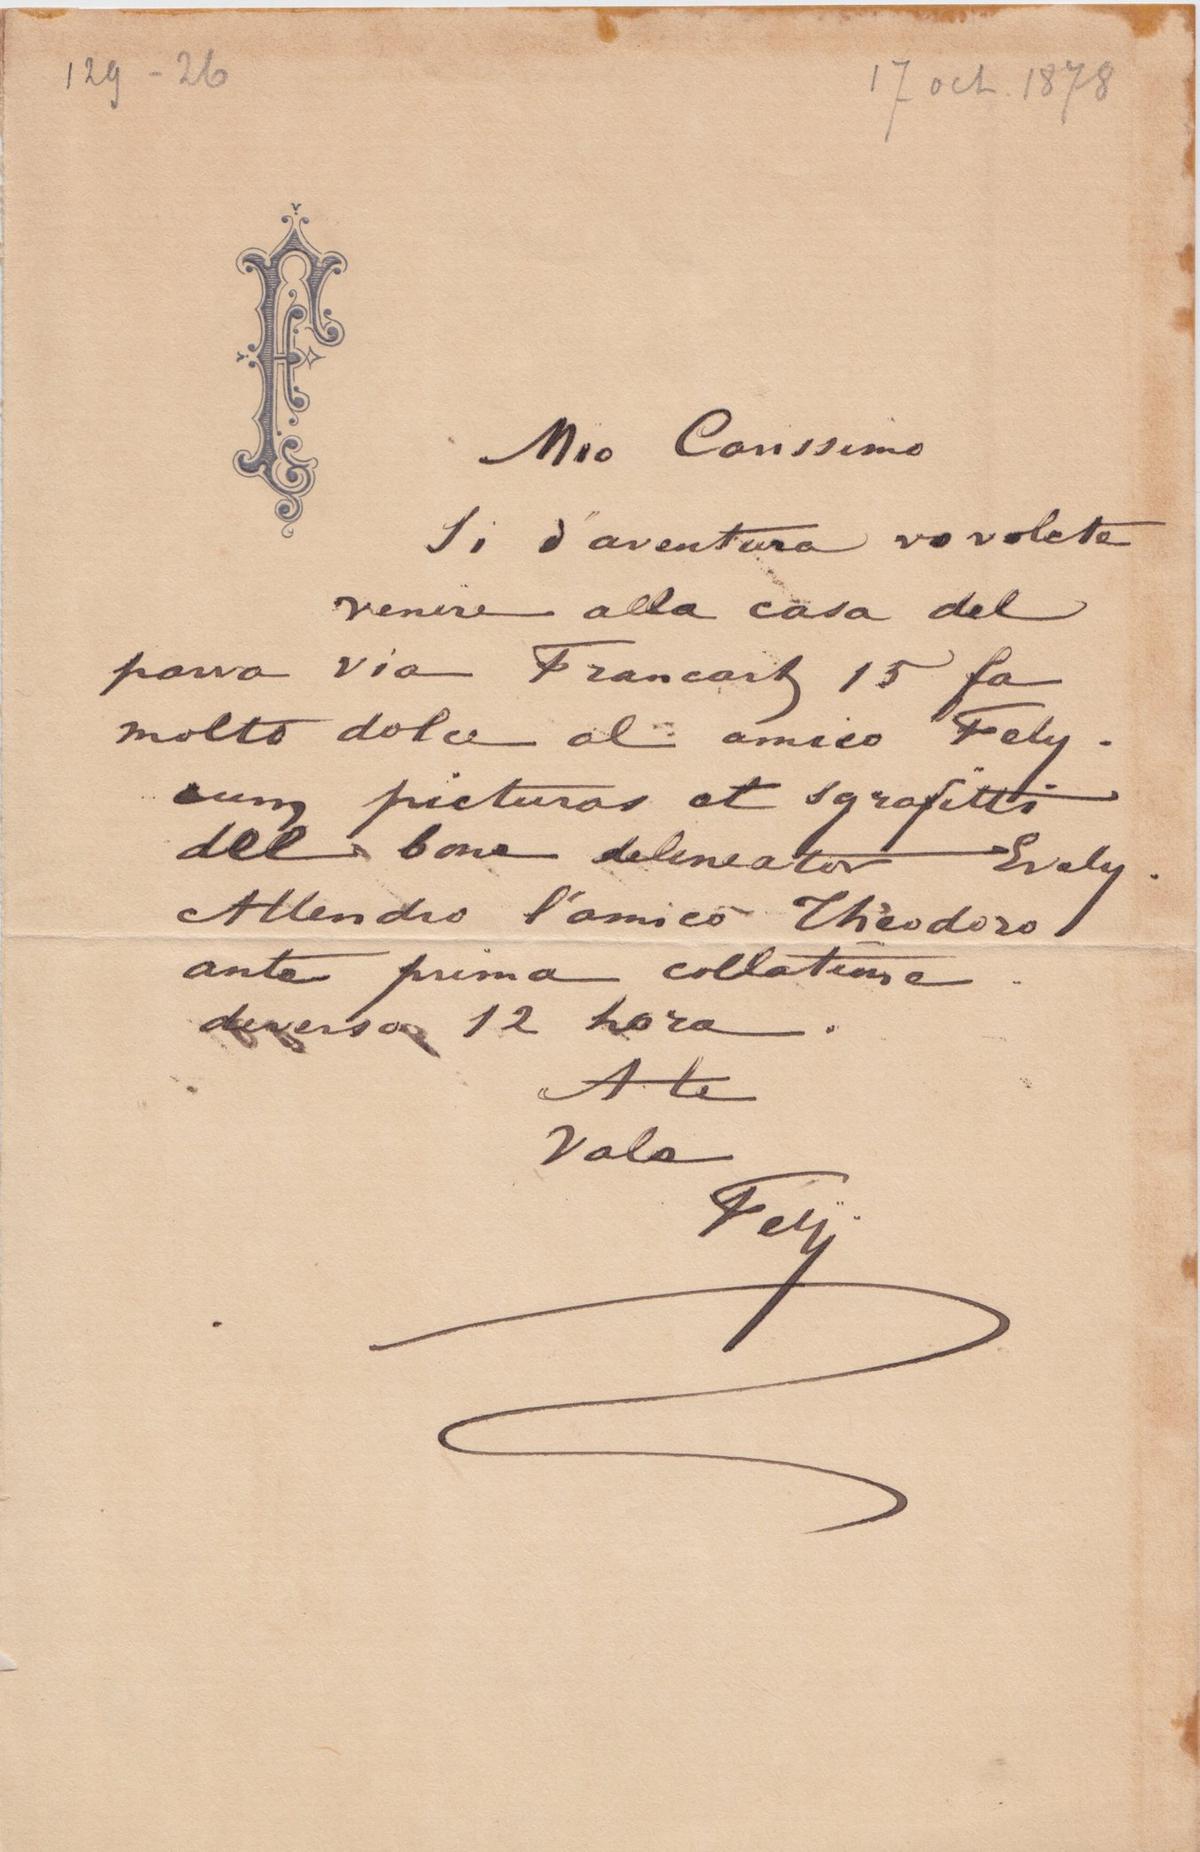 129 - 26
17 oct. 1878
F
Mio Carissimo
Si d'aventura vo volete
venire alla casa del
parva via Francart 15 fa
molto dolce al amico Fely.
cum picturas et sgrafitti
del bone delineator Evely.
Attendro l'amico Théodoro
ante prima collatione.
diverso 12 hora.
A te
Vale
Fely